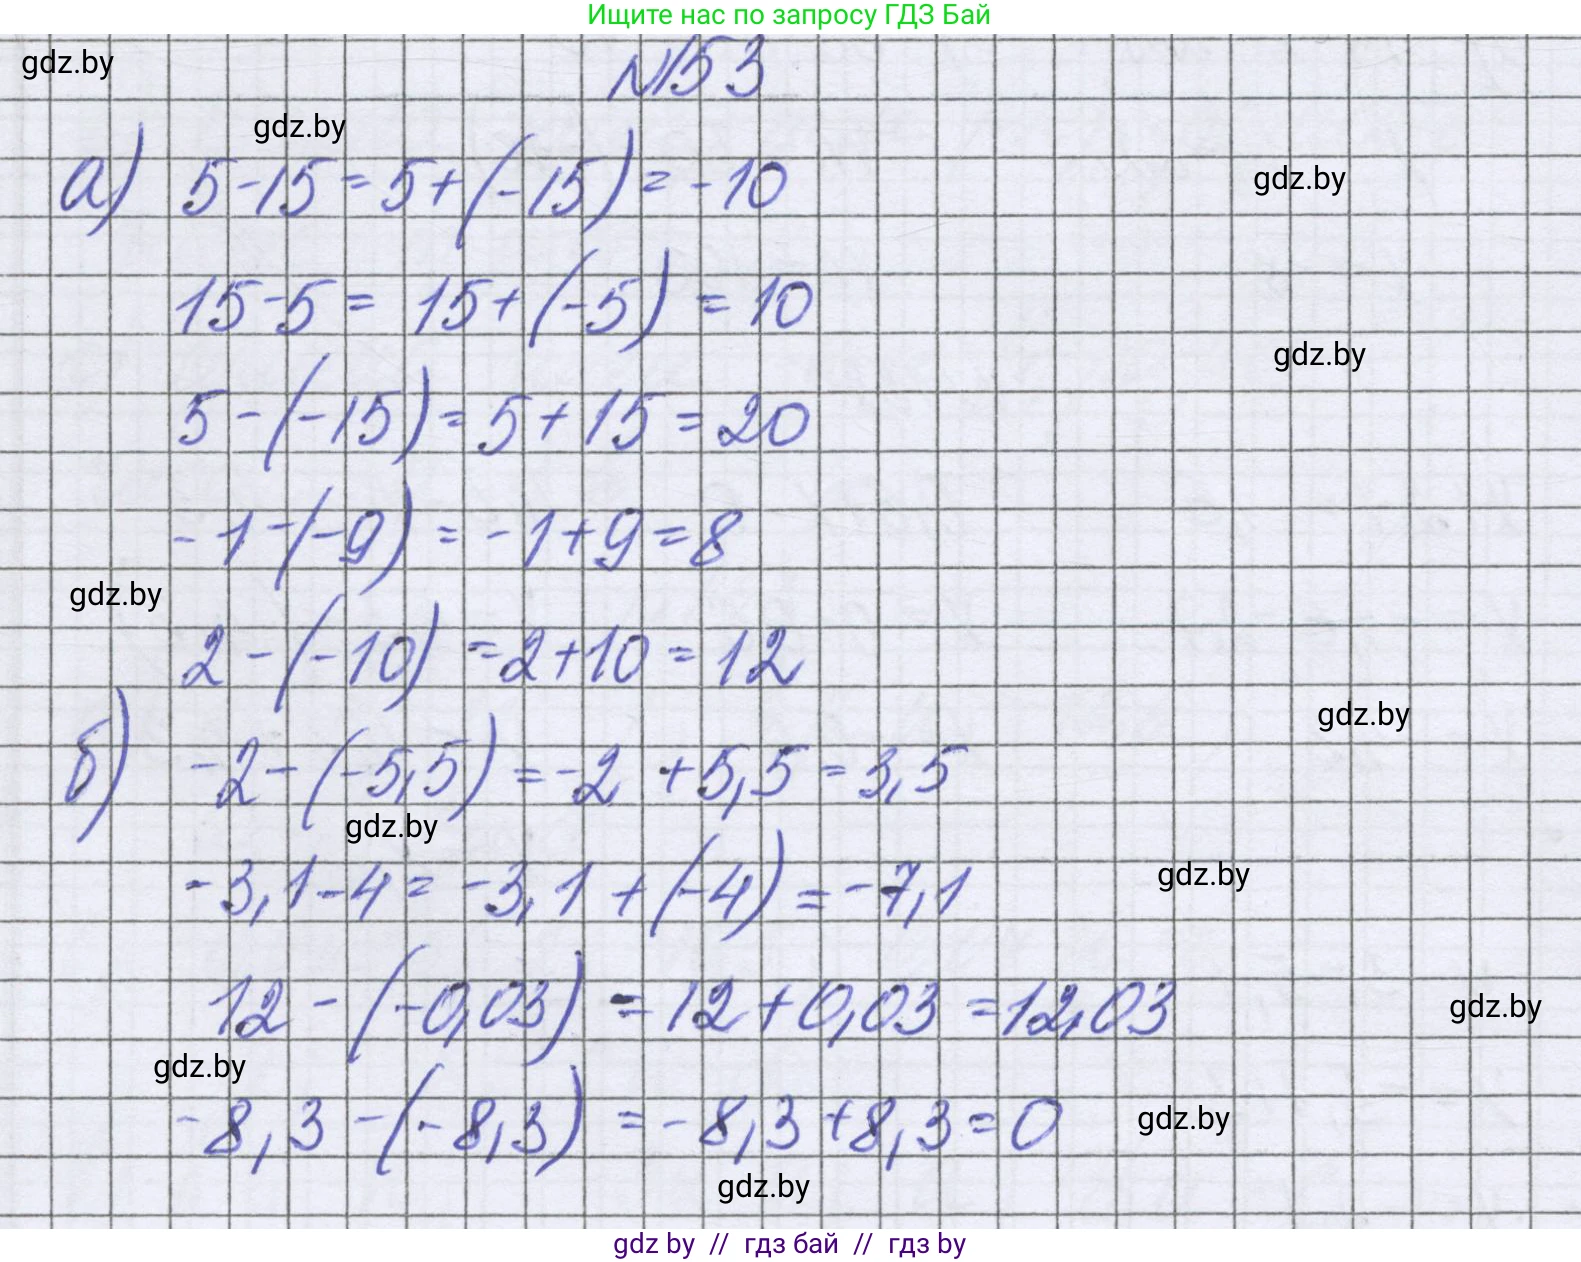 Ищите нас по запросу ГДЗ Бай
gdz.by
№153
gdz.by
а) 5-15=5+(-15)=-10
gdz.by
15-5= 15+(-5) =10
gdz.by
5-(-15)=5+15=20
-1-(-9)=-1+9=8
gdz.by
2-(-10) =2+10=12
gdz.by
б) -2-(-5,5)=-2 +5,5=3,5
gdz.by
-3,1-4=-3,1+(-4)=-7,1
gdz.by
12-(-0,03)=12+0,03=12,03
gdz.by
gdz.by
-8,3-(-8,3)=-8,3+8,3=0
gdz.by
gdz.by
gdz by // гдз бай // гдз by